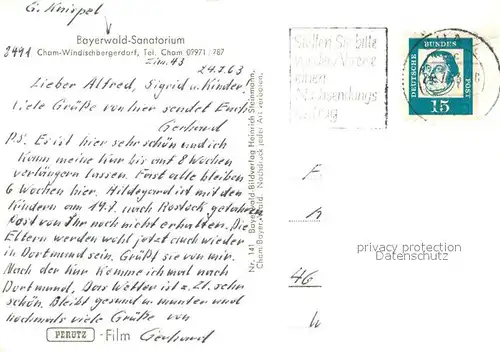 G. Knispel
Bayerwald-Sanatorium
8491 Cham-Windischbergerdorf, Tel. Cham 09971/787
Zim. 43
24.7.63
Lieber Alfred, Sigrid u. Kinder
viele Grüße von hier sendet Euch
Gerhard
P.S. Es ist hier sehr schön und ich
kann meine Kur bis auf 8 Wochen
verlängern lassen. Fast alle bleiben
6 Wochen hier. Hildegard ist mit den
Kindern am 19.7. nach Rostock gefahren
Post von Ihr noch nicht erhalten. Die
Eltern werden wohl jetzt auch wieder
in Dortmund sein. Grüßt sie von mir.
Nach der Kur komme ich mal nach
Dortmund. Das Wetter ist z.Zt. sehr
schön. Bleibt gesund u. munter und
nochmals viele Grüße von
Gerhard
PERUTZ -Film
Nr. 141 Bayerwald-Bildverlag Heinrich Stammohn,
Cham/Bayer. Wald. Nachdruck jeder Art verboten.
Stellen Sie bitte
vor der Abreise
einen
Nachsendungs
antrag
DEUTSCHE
BUNDES
POST
15
F
K
46
W
privacy protection
Datenschutz